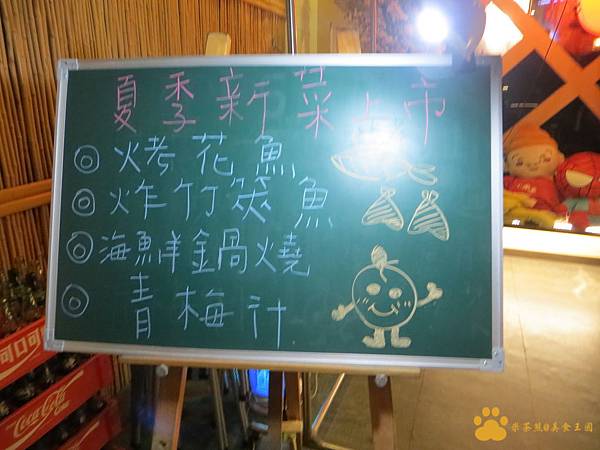 夏季新菜上市
◎烤花魚
◎炸竹筴魚
◎海鮮鍋燒
◎青梅汁
可口可
Coca-Cola
米茶熊@美食王國